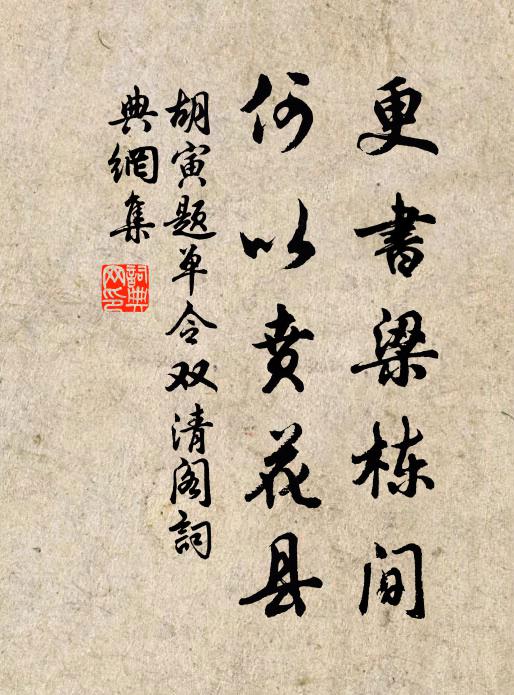 更书梁栋间
何以贲花县
胡寅题单令双清阁词
典网集
词典网印